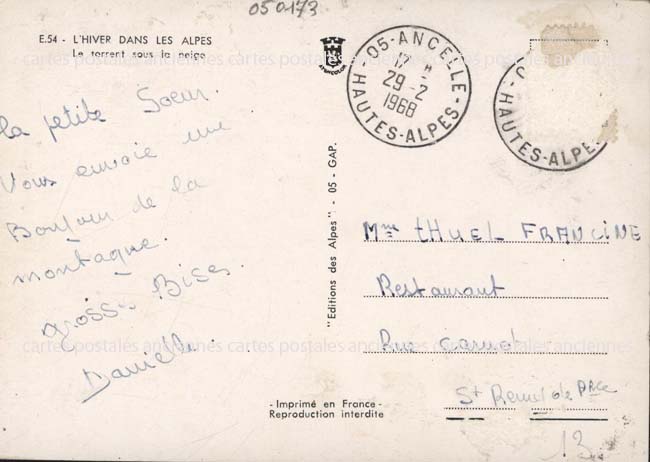 050173
E.54 - L'HIVER DANS LES ALPES
Le torrent sous la neige
cartes postales anciennes cartes postales anciennes cartes postales anciennes
05-ANCELLE
29-2
1968
HAUTES-ALPES
HAUTES-ALPE
la petite Soeur.
Vous envoie une
Bonjour de la
montagne.
gross Bises.
Danielle.
"Editions des Alpes" - 05 - GAP.
Mme tHUEL FRANCINE
Restaurant
Rue Carnot
St Remi de Prce
13
cartes postales anciennes cartes postales anciennes cartes postales anciennes
- Imprimé en France -
Reproduction interdite